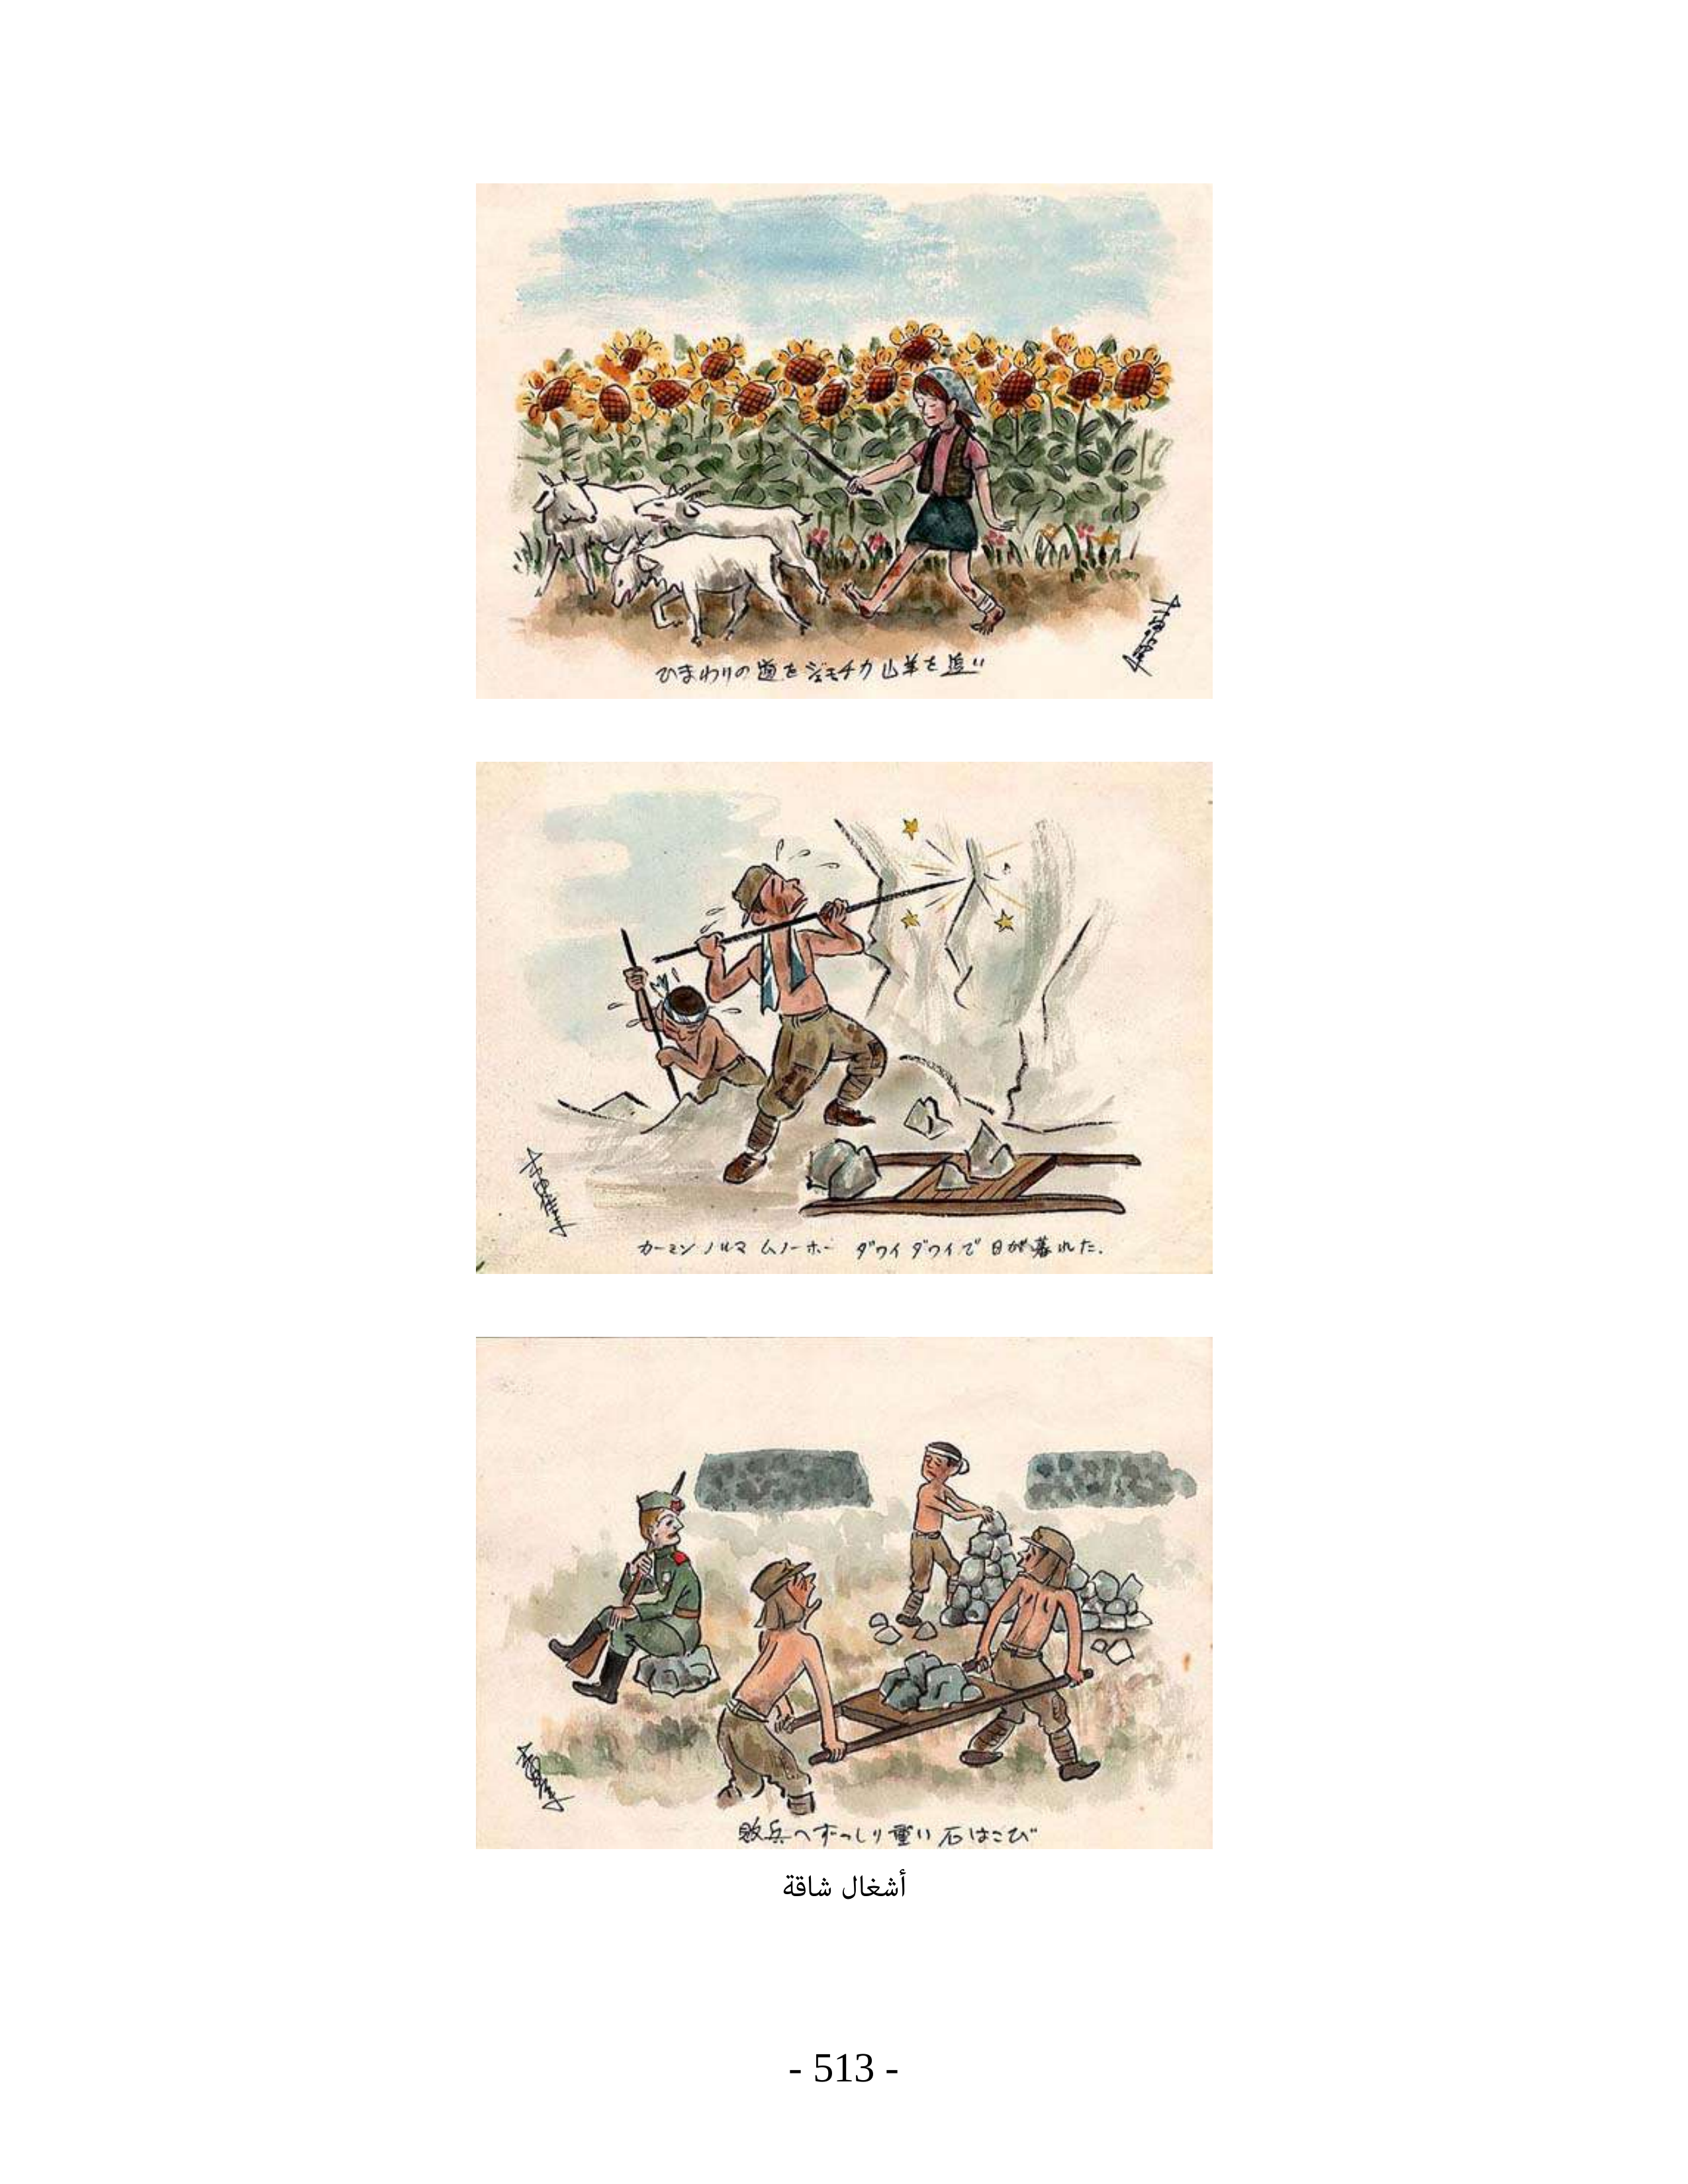 ひまわりの道をジェモチカ山羊を追い
カーミン ノルマ ムノーホー ダワイダワイで日が暮れた.
敗兵へずっしり重い石はこび
أشغال شاقة
- 513 -